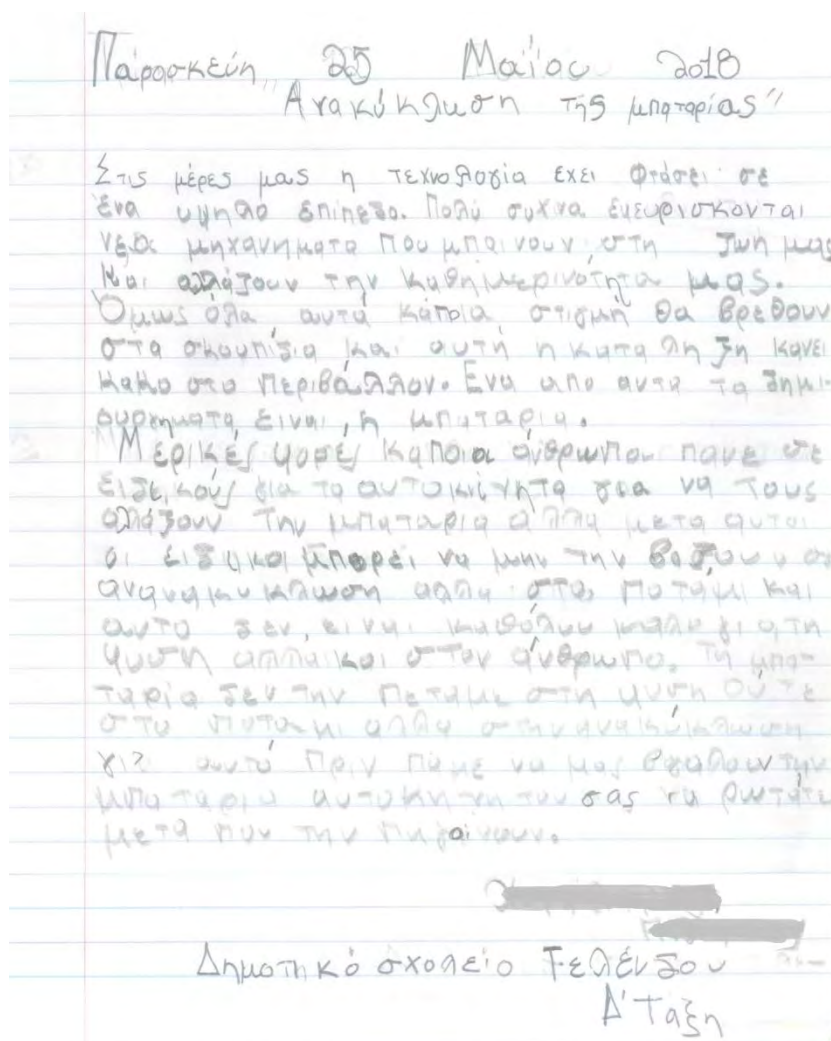 Παρασκεύη 25 Μαΐου 2018
Ανακύκλωση της μπαταρίας"
Στις μέρες μας η τεχνολογία εχει φτάσει σε
ένα υψηλό επίπεδο. Πολύ συχνα εφευρισκονται
νέα μηχανηματα που μπαινουν στη ζωη μας
Και αλλάζουν την καθημερινότητα μας.
Όμως όλα αυτά κάποια στιγμή θα βρεθουν
στα σκουπίδια και αυτή η καταληξη κανει
κακο στο περιβάλλον. Ενα απο αυτα τα δημι-
ουργηματα ειναι, η μπαταρια.
Μερικές φορές καποιοι άνθρωποι πανε σε
ειδικούς για τα αυτοκίνητα για να τους
αλλάζουν την μπαταρια αλλα μετα αυτοι
οι ειδικοι μπορεί να μην την βαζουν σε
ανανακυκλωση αλλα στο ποτάμι και
αυτο δεν ειναι καθόλου καλο για τη
φυση αλλα και στον άνθρωπο. Τη μπα-
ταρία δεν την πεταμε στη φυση ούτε
στο ποταμι αλλα στην ανακύκλωση
γι' αυτό πριν πάμε να μας βγαλουν την
μπαταρια αυτοκινητου σας να ρωτάτε
μετα που την πηγαινουν.
Δημοτικό σχολείο Γελένδου
Δ' Ταξη